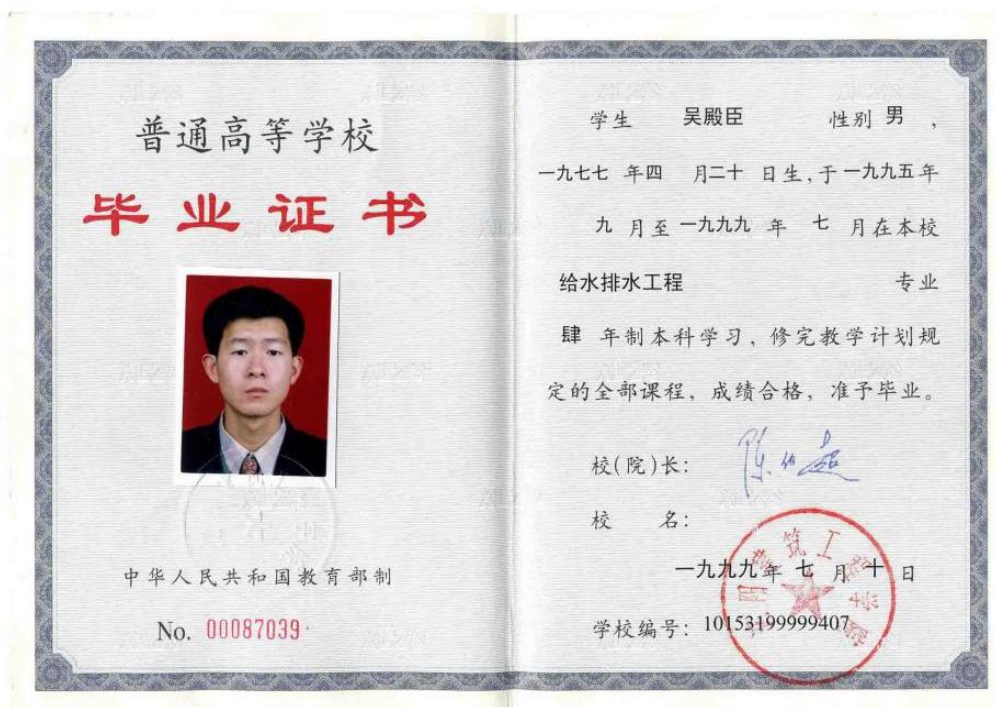 普通高等学校
毕业证书
中华人民共和国教育部制
No. 00087039
学生 吴殿臣 性别 男,
一九七七 年四 月二十 日生,于一九九五年
九 月至 一九九九 年 七 月在本校
给水排水工程 专业
肆 年制本科学习,修完教学计划规
定的全部课程,成绩合格,准予毕业。
校(院)长:
校 名:
一九九九年 七 月 十 日
学校编号:10153199999407